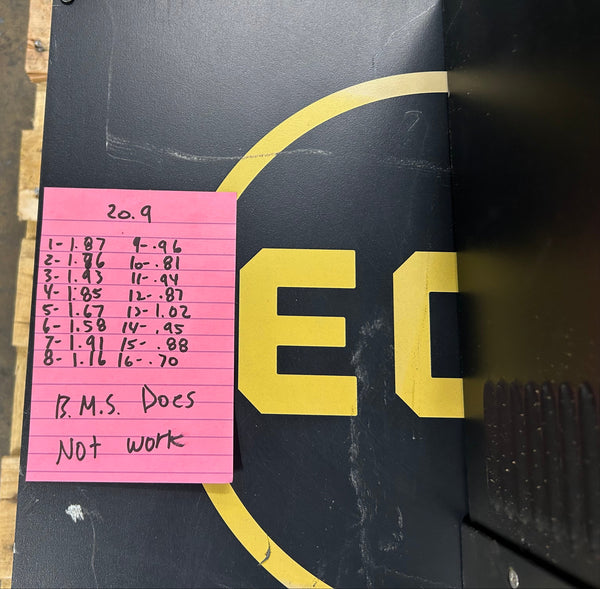 20.9
1- 1.87 9- .96
2- 1.86 10- .81
3- 1.93 11- .94
4- 1.85 12- .87
5- 1.67 13- 1.02
6- 1.58 14- .95
7- 1.91 15- .88
8- 1.16 16- .70
B.M.S. Does
Not work
EC